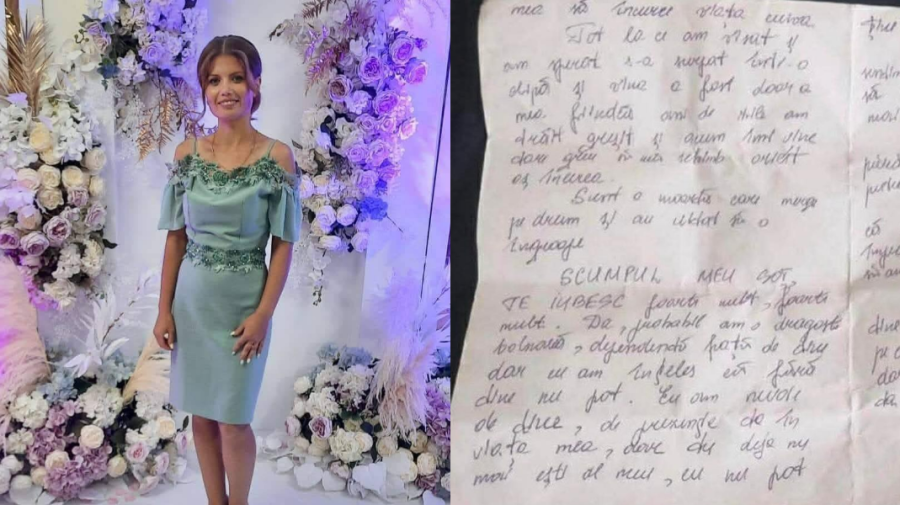 mea să încerce viața cuiva
Tot la ce am visat și
am sperat s-a surpat într-o
clipă și vina a fost doar a
mea. Fiindcă ani de zile am
trăit greșit și acum îmi vine
dare greu să mă schimb oricât
aș încerca.
Sunt o moartă care merge
pe drum și au uitat să o
îngroape
SCUMPUL MEU SOȚ
TE IUBESC foarte mult, foarte
mult. Da, probabil am o dragoste
bolnavă, dependentă față de tine
dar eu am înțeles că fără
tine nu pot. Eu am nevoie
de tine, de prezența ta în
viața mea, dar tu deja nu
mai ești al meu, eu nu pot
ține
să
mori
că
tine
pe
dar